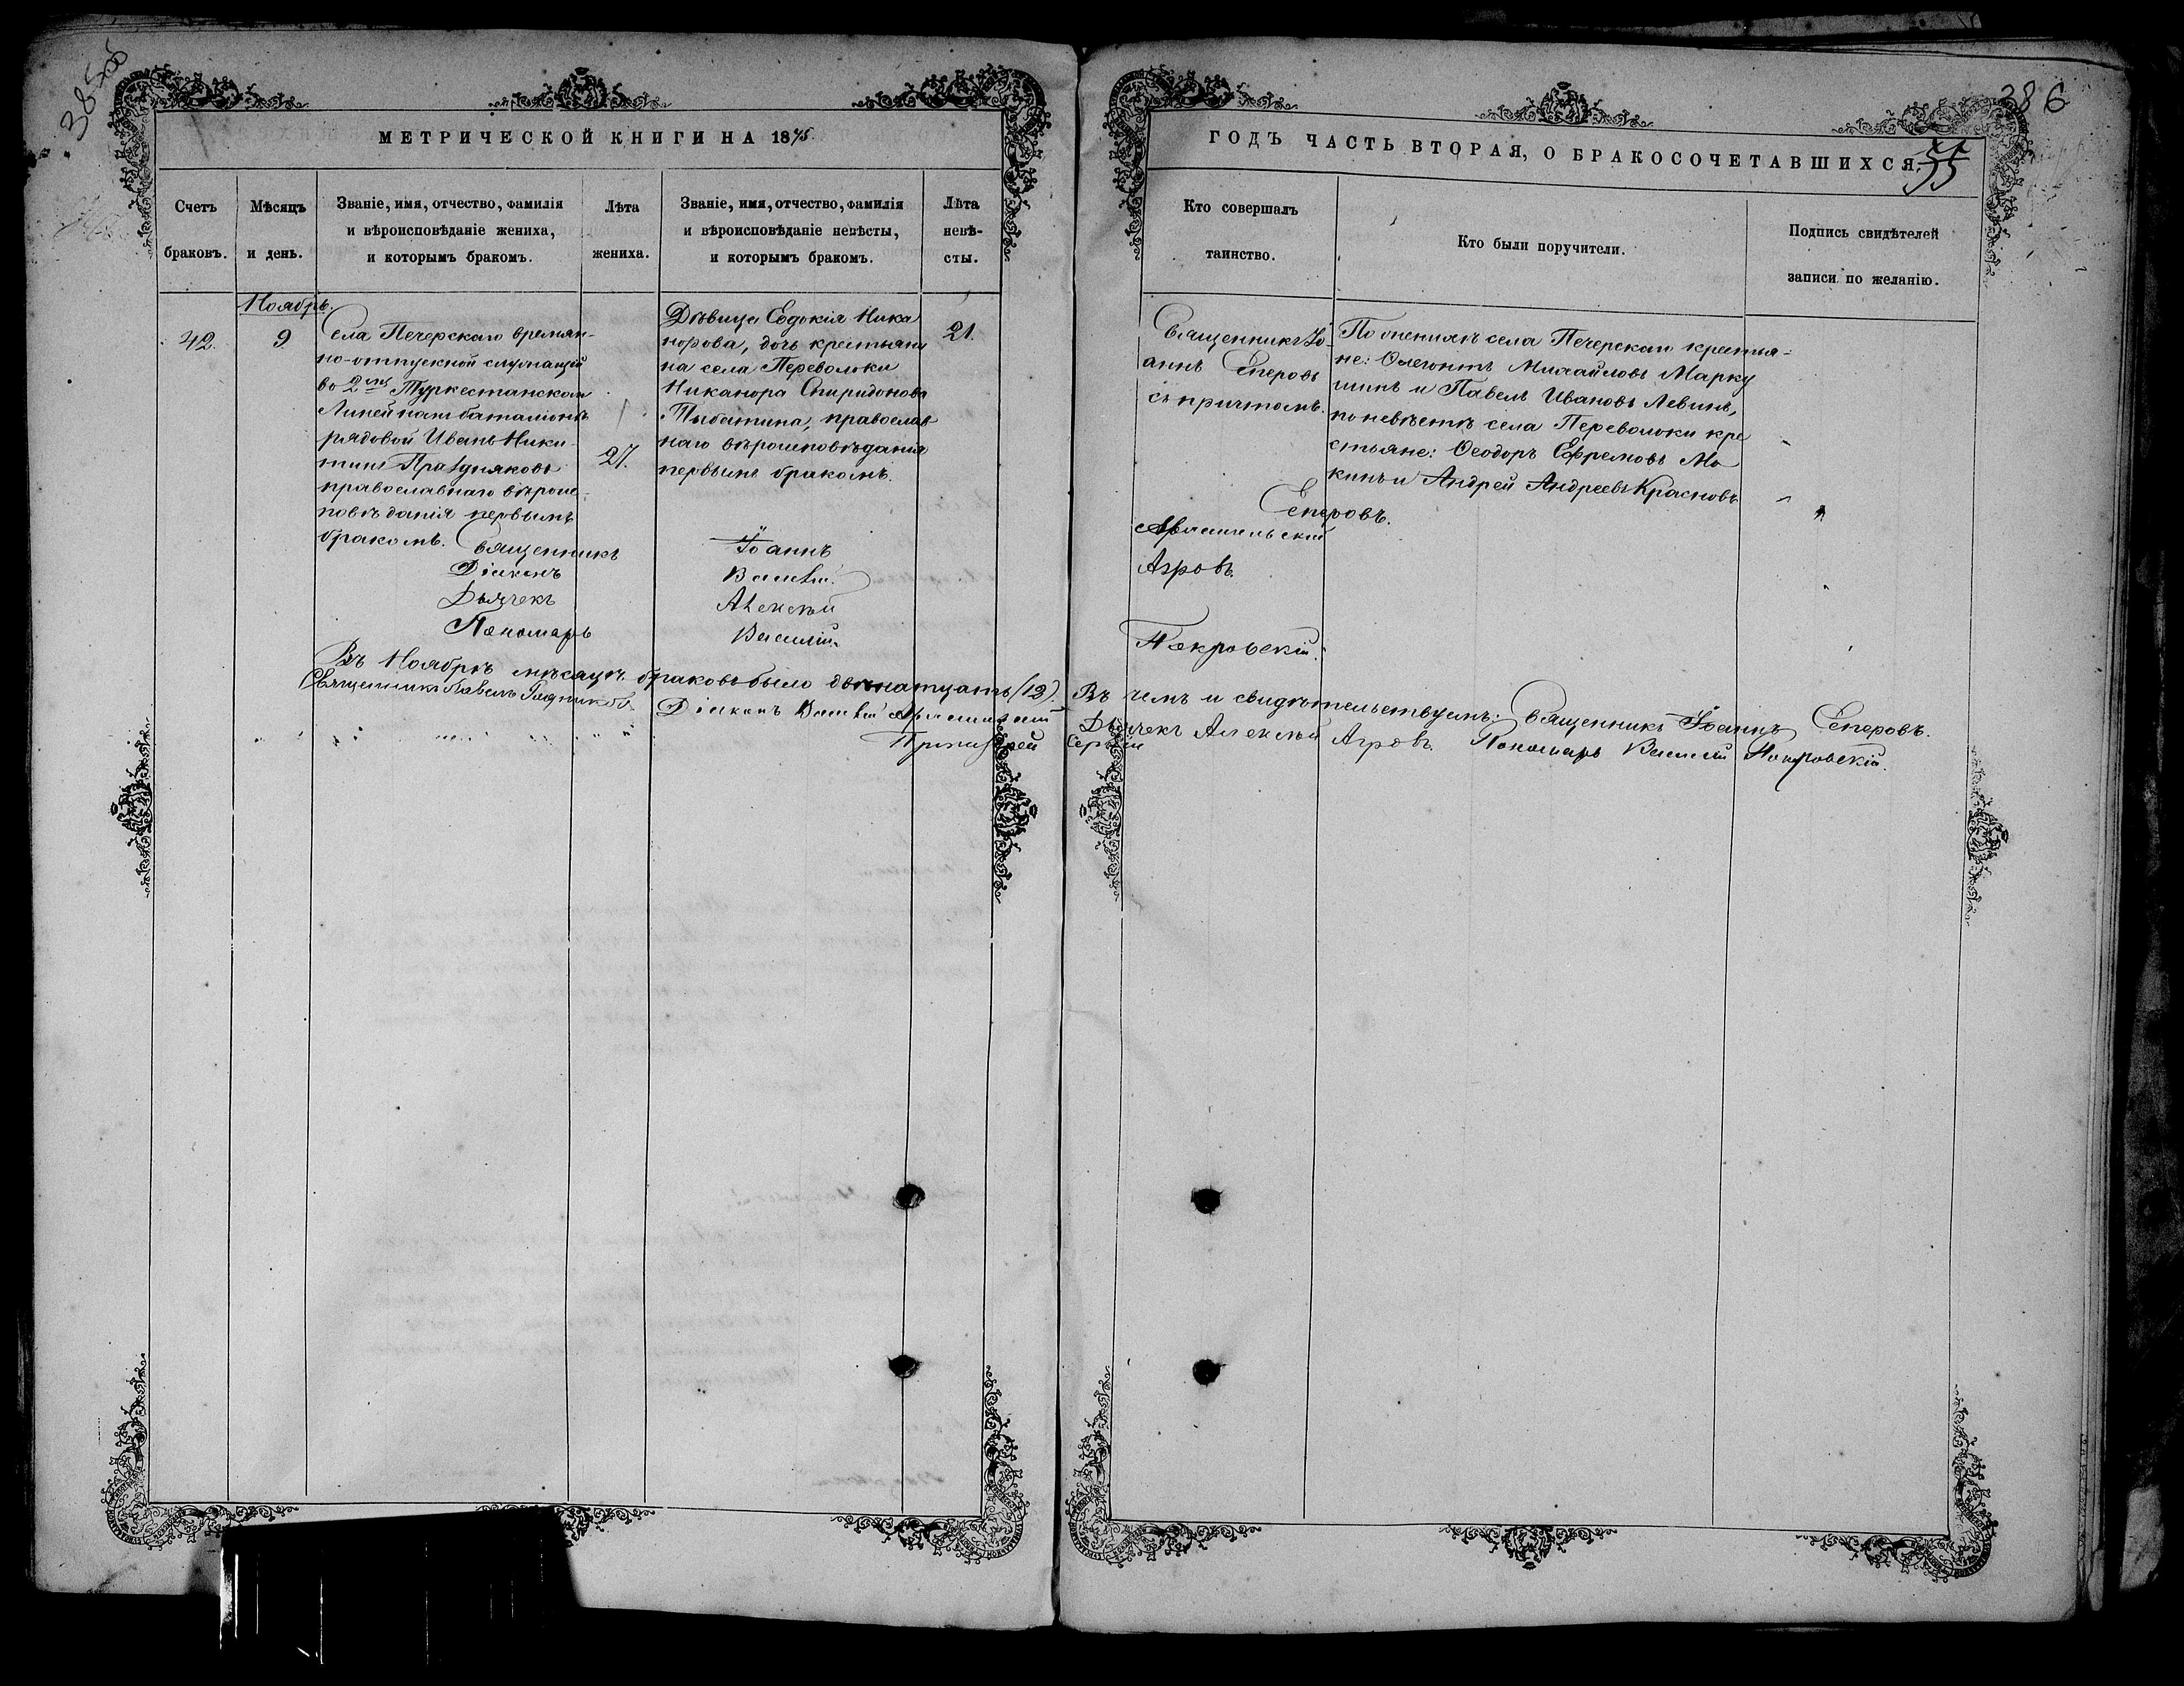 385об
МЕТРИЧЕСКОЙ КНИГИ НА 1875
Счетъ браковъ.
Мѣсяцъ и день.
Званіе, имя, отчество, фамилія
и вѣроисповѣданіе жениха,
и которымъ бракомъ.
Лѣта жениха.
Званіе, имя, отчество, фамилія
и вѣроисповѣданіе невѣсты,
и которымъ бракомъ.
Лѣта невѣ-
сты.
Ноябрь.
42.
9
Села Печерскаго времян-
но-отпускной служащій
во 2мъ Туркестанскомъ
Линейномъ баталіонѣ
рядовой Иванъ Ники-
тинъ Праздняковъ
православнаго вѣроис-
повѣданія первымъ
бракомъ.
27.
Дѣвица Евдокія Ника
норова, дочь крестьяни
на села Переволоки
Никанора Спиридонова
православ
наго вѣроисповѣданія
первымъ бракомъ.
21.
Священникъ Іоаннъ
Діаконъ
Дьячекъ Алексѣй
Пономарь Василій
Въ Ноябрѣ мѣсяцѣ браковъ было двѣнатцать (12).
Священникъ Павелъ
Діаконъ
386
ГОДЪ ЧАСТЬ ВТОРАЯ, О БРАКОСОЧЕТАВШИХСЯ.
55
Кто совершалъ
таинство.
Кто были поручители.
Подпись свидѣтелей
записи по желанію.
Священникъ Іо-
аннъ Сперовъ
съ причтомъ.
По женихѣ села Печерскаго крестья-
не: Михайловъ Марку
шинъ и Павелъ Ивановъ Левинъ,
по невѣстѣ села Переволоки кре
стьяне: Ѳеодоръ Ефремовъ Мо
кинъ и Андрей Андреевъ Красновъ
Сперовъ.
Агровъ.
Покровскій.
Въ чемъ и свидѣтельствуемъ: Священникъ Іоаннъ Сперовъ.
Дьячекъ Алексѣй Агровъ. Пономарь Василій Покровскій.